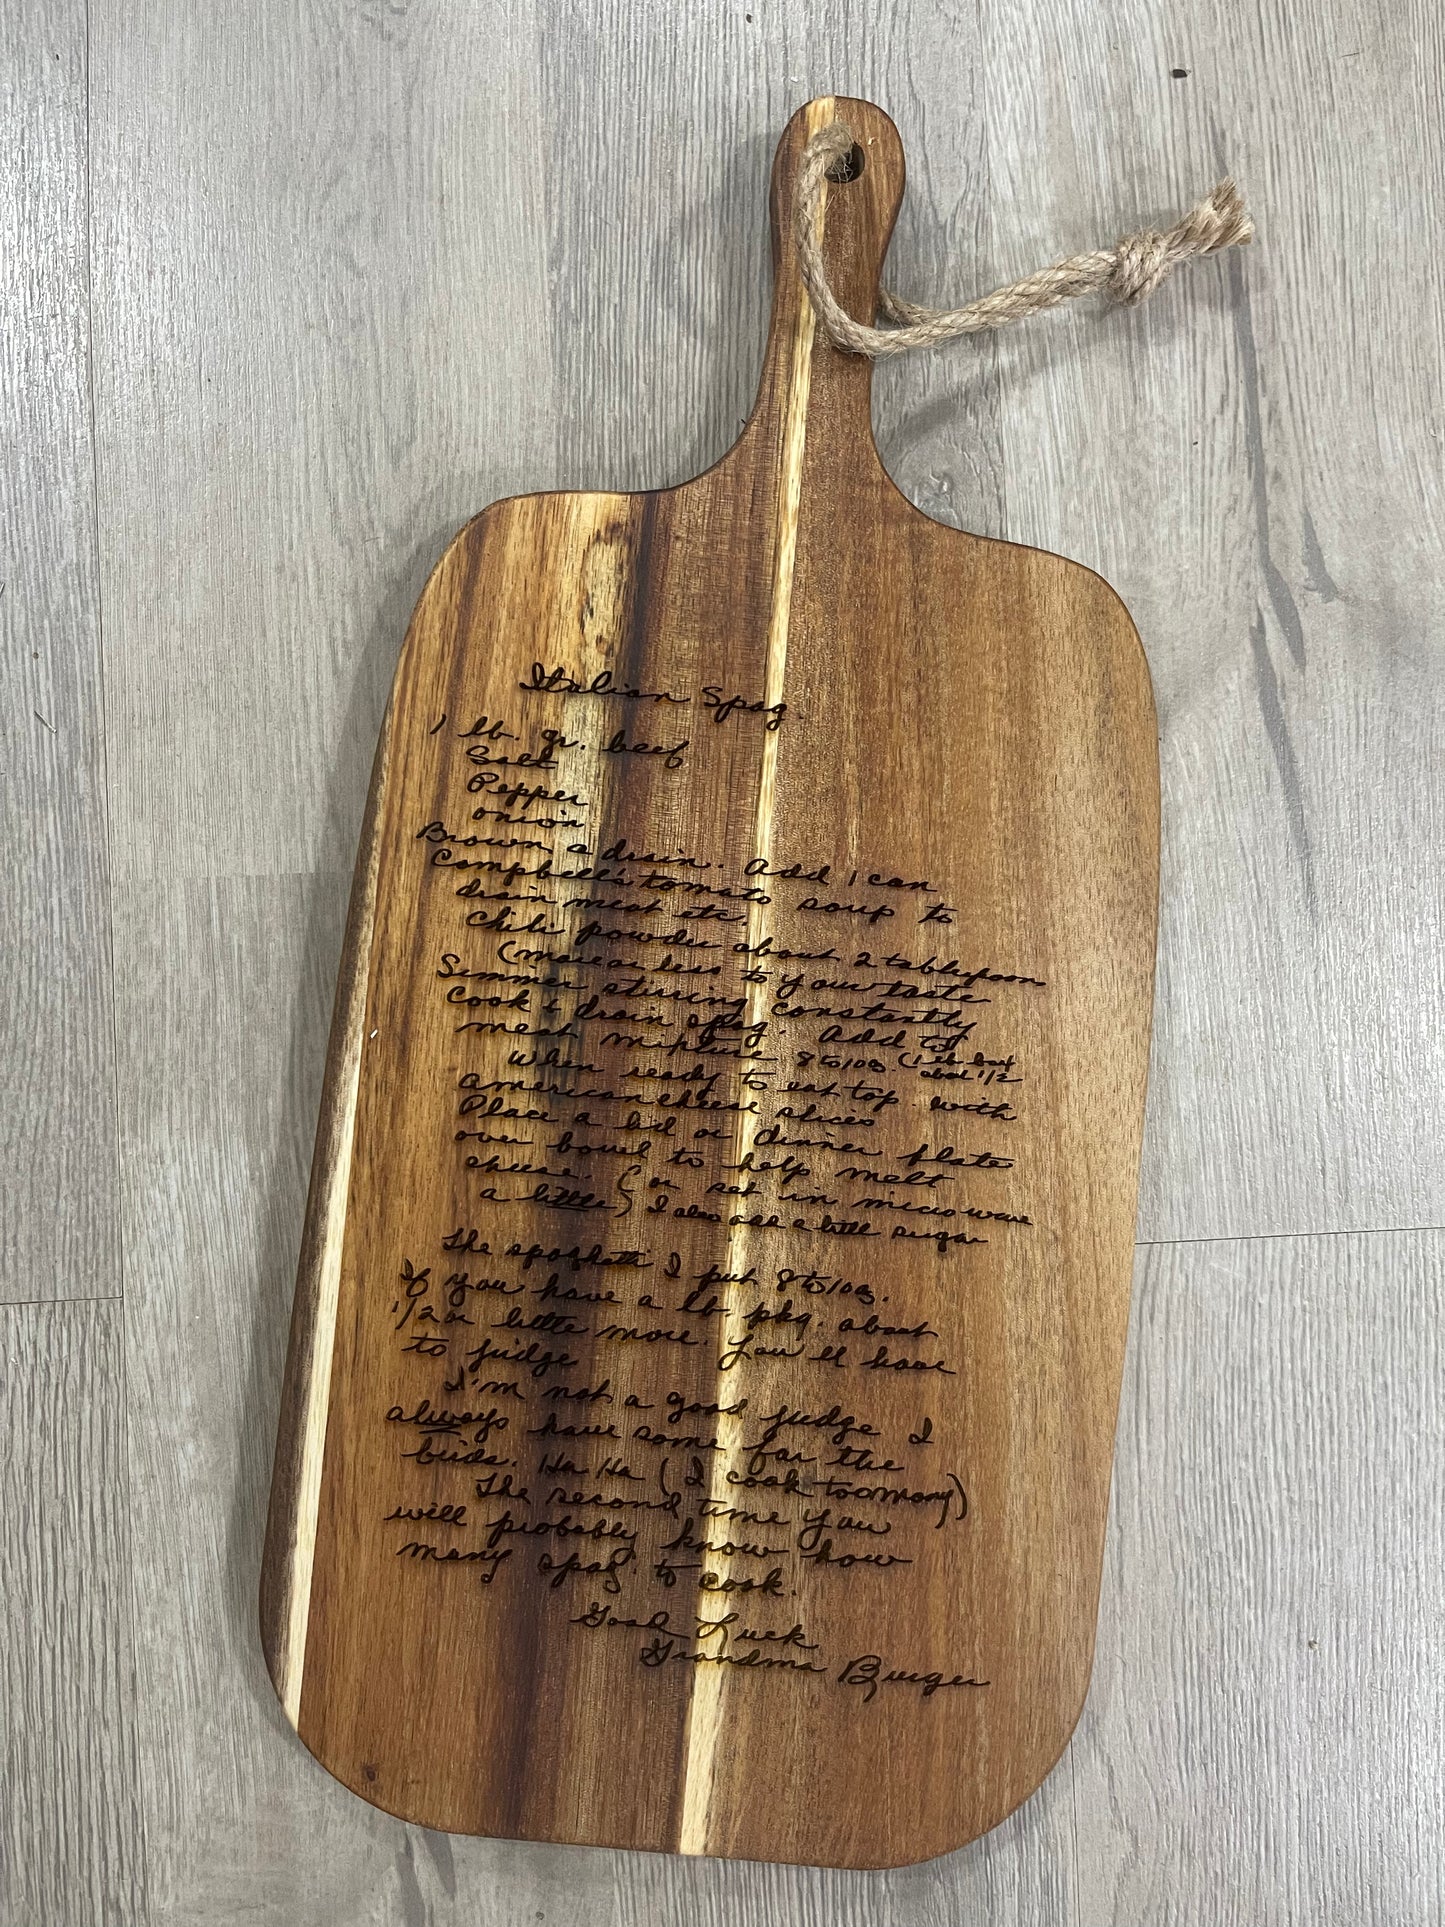 Italian Spag.
1 lb. gr. beef
Salt
Pepper
onion
Brown & drain. Add 1 can
Campbell's tomato soup to
drain meat etc.
Chili powder about 2 tablespoon
(more or less to your taste
Simmer stirring constantly
Cook & drain spag. Add to
meat mixture 8 to 10 oz (1 lb. box about 1/2
When ready to eat top with
American cheese slices
Place a lid or dinner plate
over bowl to help melt
cheese. (or set in microwave
a little) I also add a little sugar
The spaghetti I put 8 to 10 oz.
If you have a lb. pkg. about
1/2 or little more. You'll have
to judge
I'm not a good judge I
always have some for the
birds. Ha Ha (I cook too many)
The second time you
will probably know how
many spag. to cook.
Good Luck
Grandma Burger